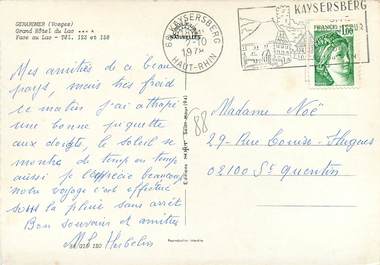 GERARDMER (Vosges)
Grand Hôtel du Lac ***
Face au Lac - Tél. 122 et 158
68 KAYSERSBERG
7-10
1978
HAUT-RHIN
KAYSERSBERG
FRANCE
Mes amitiés de ce beau
pays, mais très froid
le matin j'ai attrapé
une bonne piquette
aux doigts, le soleil se
montre de temps en temps
aussi je l'apprécie beaucoup
notre voyage s'est effectué
sous la pluie sans arrêt
Bon souvenir et amitiés
M.L. Hubelin
88
Madame Noë
29-Rue Louise-Hugues
02100 St Quentin
Reproduction interdite